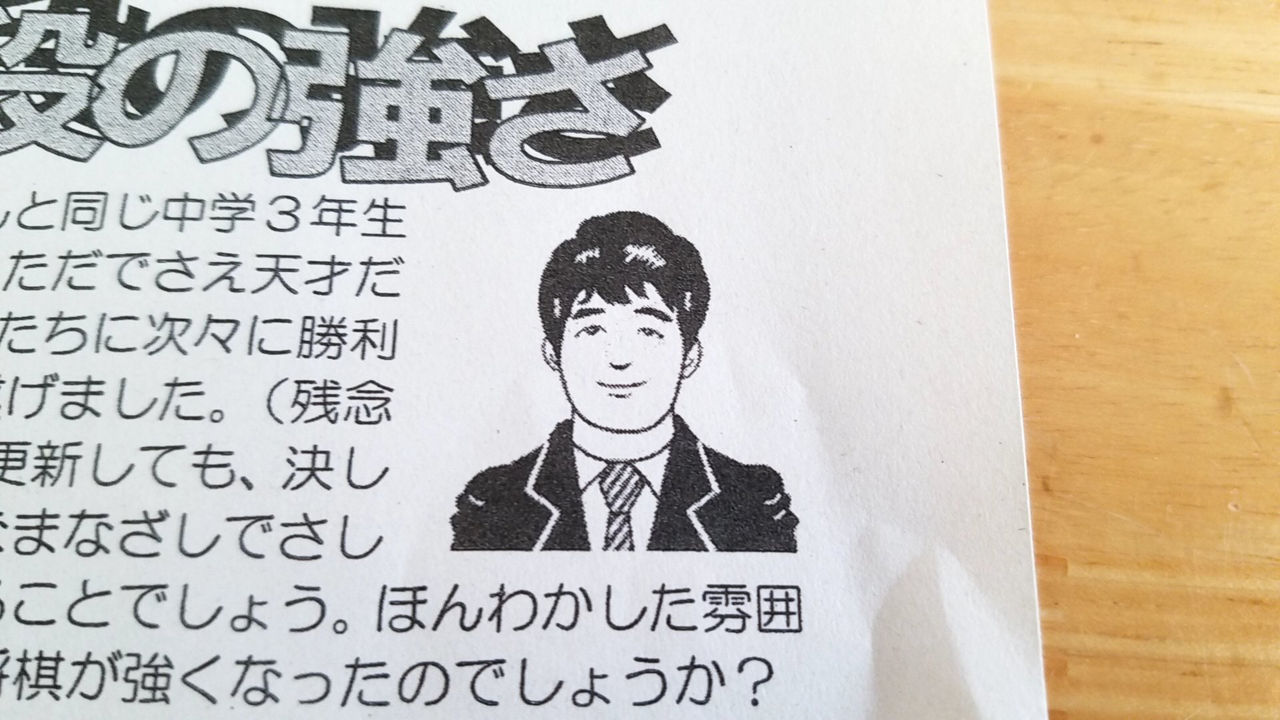 段の強さ
んと同じ中学３年生
ただでさえ天才だ
たちに次々に勝利
げました。（残念
更新しても、決し
なまなざしでさし
ことでしょう。ほんわかした雰囲
将棋が強くなったのでしょうか？